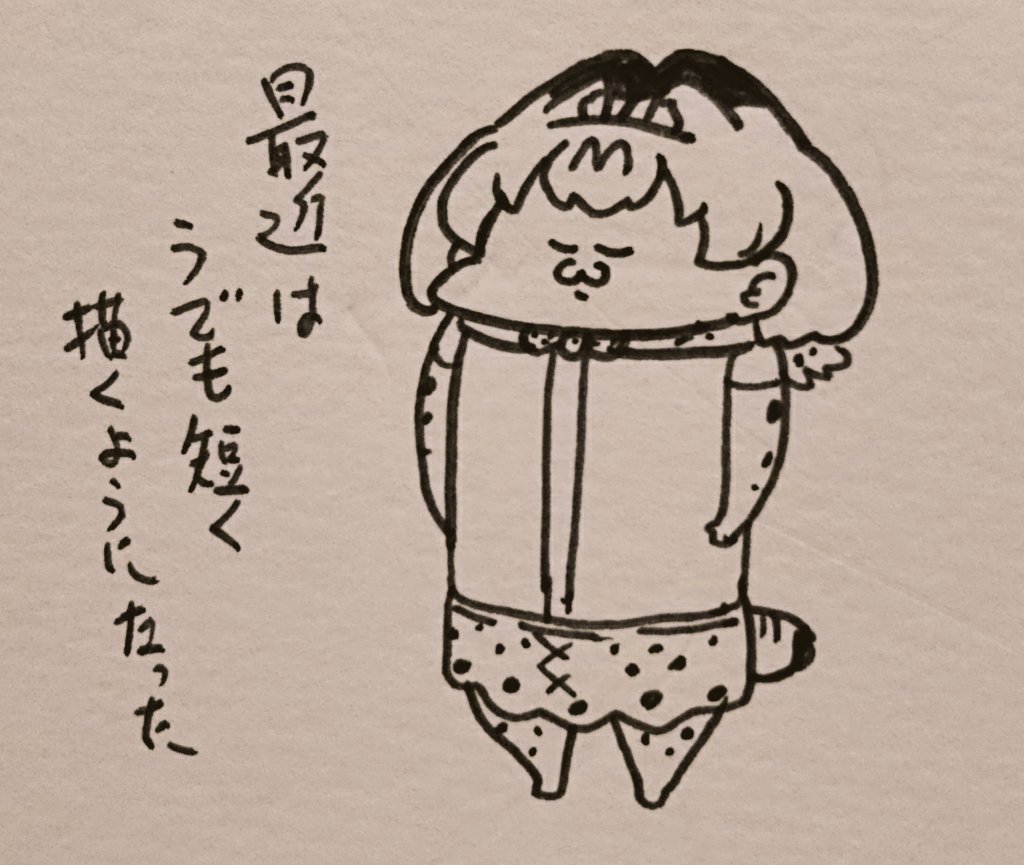 最近は
うでも短く
描くようになった